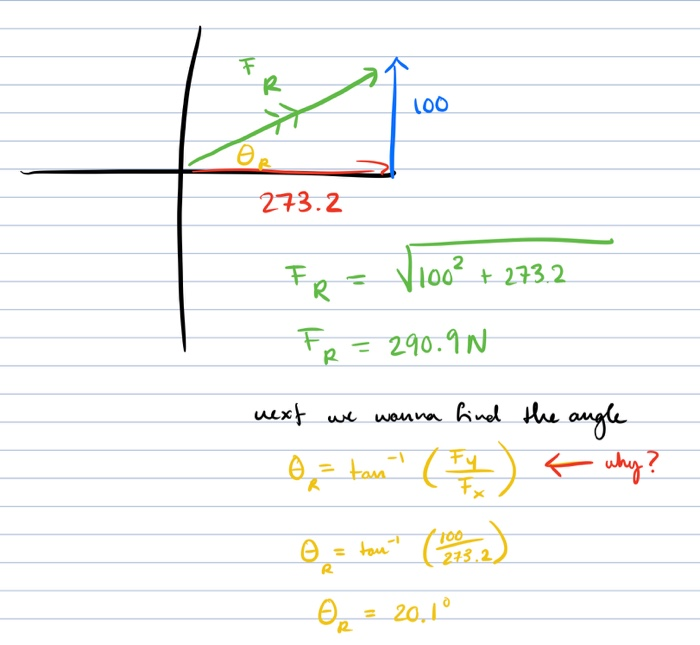 F_R
100
θ_R
273.2
F_R = √(100² + 273.2)
F_R = 290.9N
next we wanna find the angle
θ_R = tan⁻¹ (Fy/Fx) ← why?
θ_R = tan⁻¹ (100/273.2)
θ_R = 20.1°